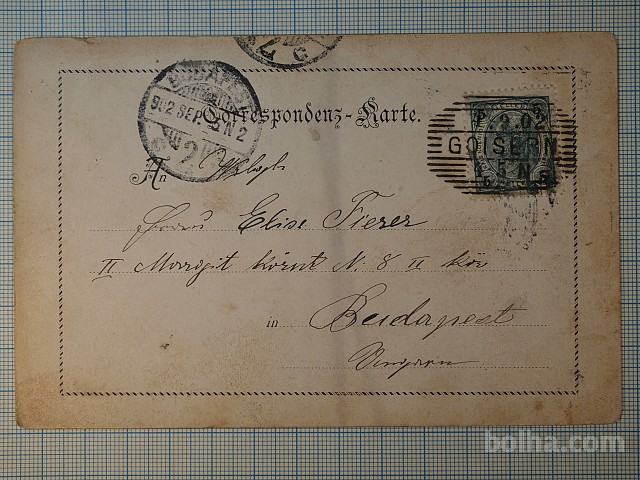 Correspondenz-Karte.
An
BUDAPEST
902 SEP. 3 N 2
2. 9. 02
GOISERN
5 N
Elise Fierer
II Margit körut N. 8 II
in Budapest
Ungarn
bolha.com